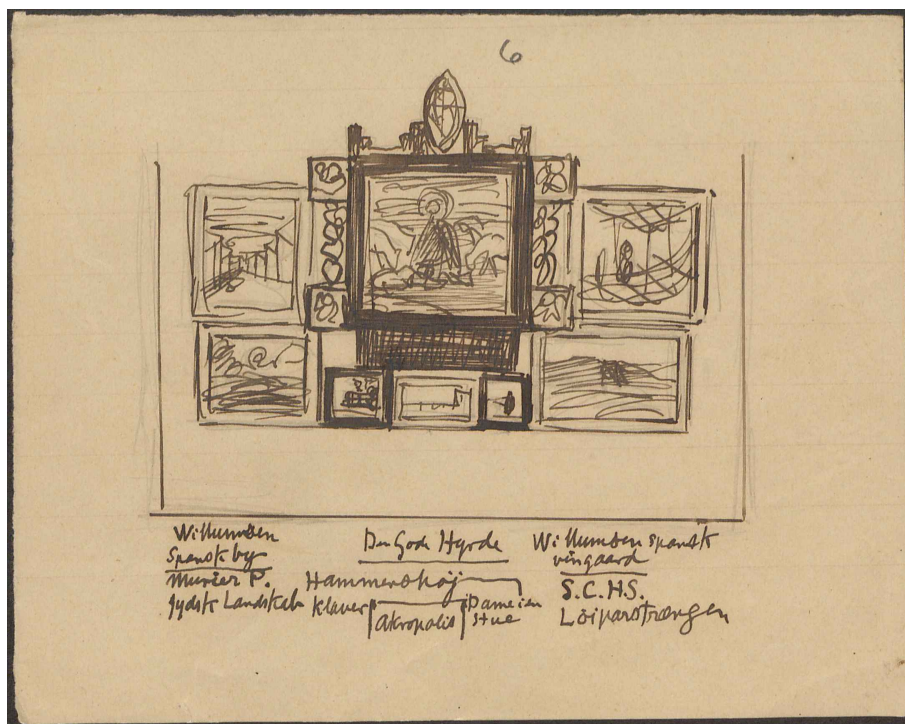 6
Willumsen
Spansk by
Murier P.
Jydsk Landskab
Den Gode Hyrde
Hammershøj
Klaver
Akropolis
Dame i en
stue
Willumsen spansk
vingaard
S.C.H.S.